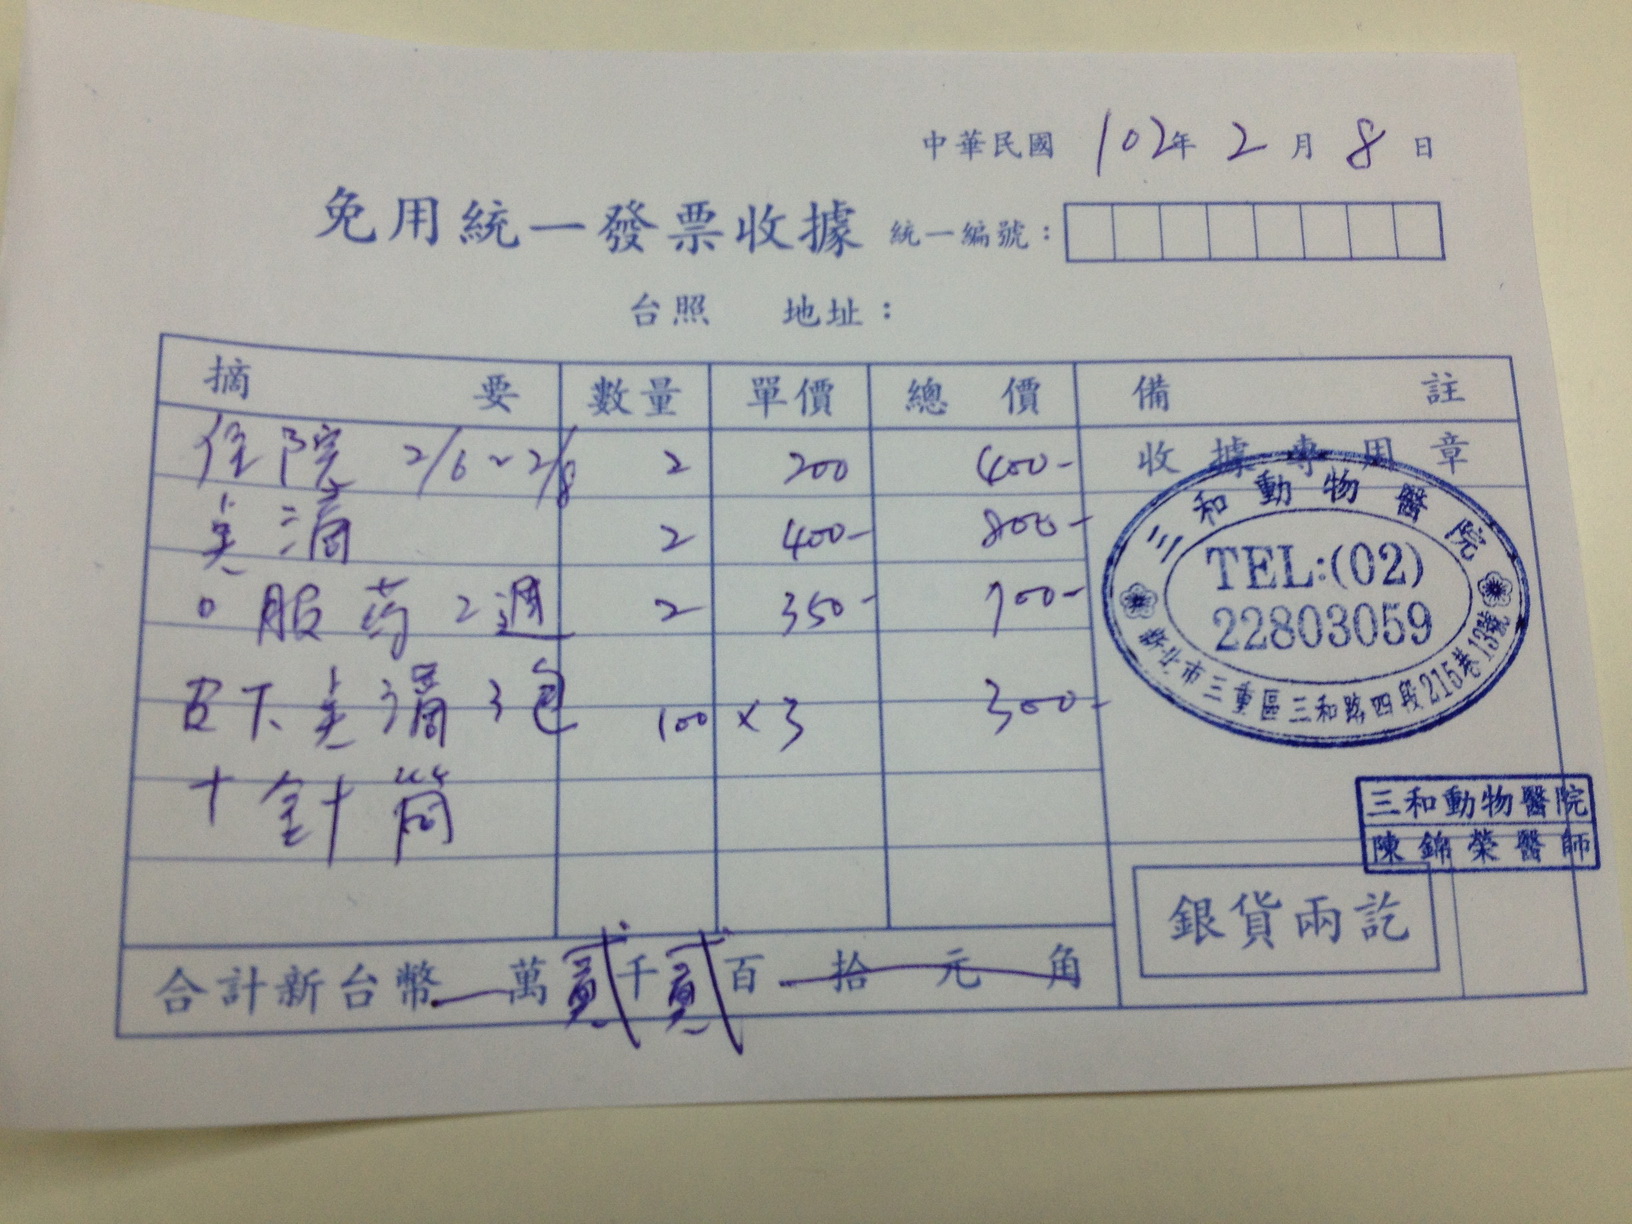 中華民國 102年 2月 8日
免用統一發票收據 統一編號：
台照 地址：
摘要 數量 單價 總價 備註
住院 2/6~2/8 2 200 400- 收據專用章
点滴 2 400- 800-
口服药2週 2 350- 700-
皮下点滴3包 100 x 3 300-
+針筒
合計新台幣 萬貳千貳百 拾 元 角
三和動物醫院
TEL:(02)
22803059
新北市三重區三和路四段215巷13號
三和動物醫院
陳錦榮醫師
銀貨兩訖